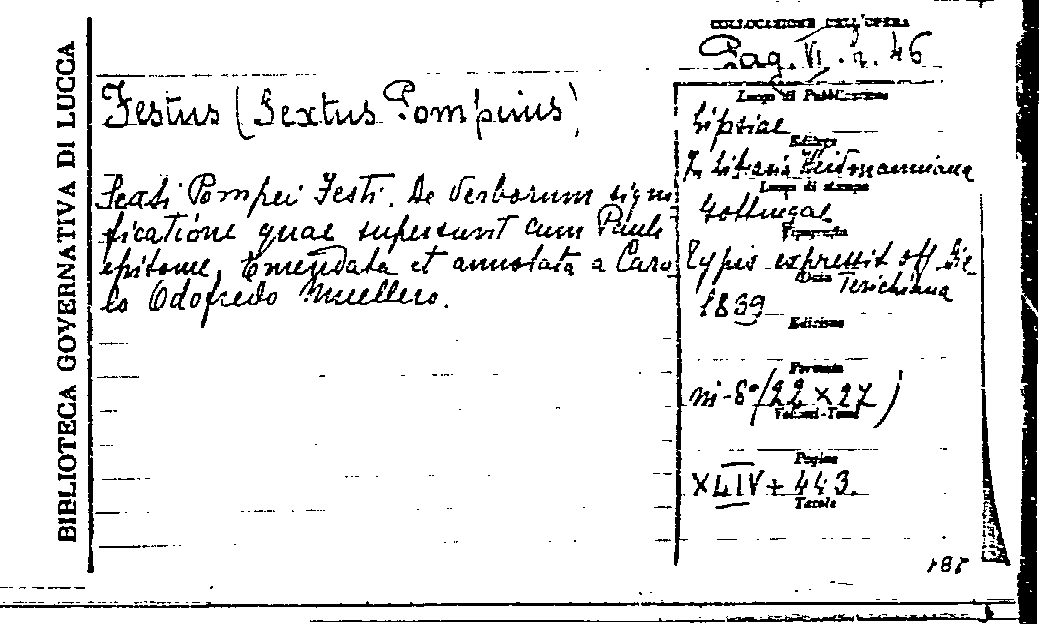 BIBLIOTECA GOVERNATIVA DI LUCCA
COLLOCAZIONE DELL'OPERA
Pag. VI. n. 46
Festus (Sextus Pompeius)
Sexti Pompei Festi. De Verborum signi
ficatione quae supersunt cum Pauli
epitome, Emendata et annotata a Caro
lo Odofredo Muellero.
Luogo di Pubblicazione
Lipsiae
Editore
In Libraria Weidmanniana
Luogo di stampa
Gottingae
Tipografia
Typis expressit off. Die
Data
Terichiana
1839
Edizione
Formato
in-8° (22 x 27)
Volumi-Tomi
Pagine
XLIV + 443.
Tavole